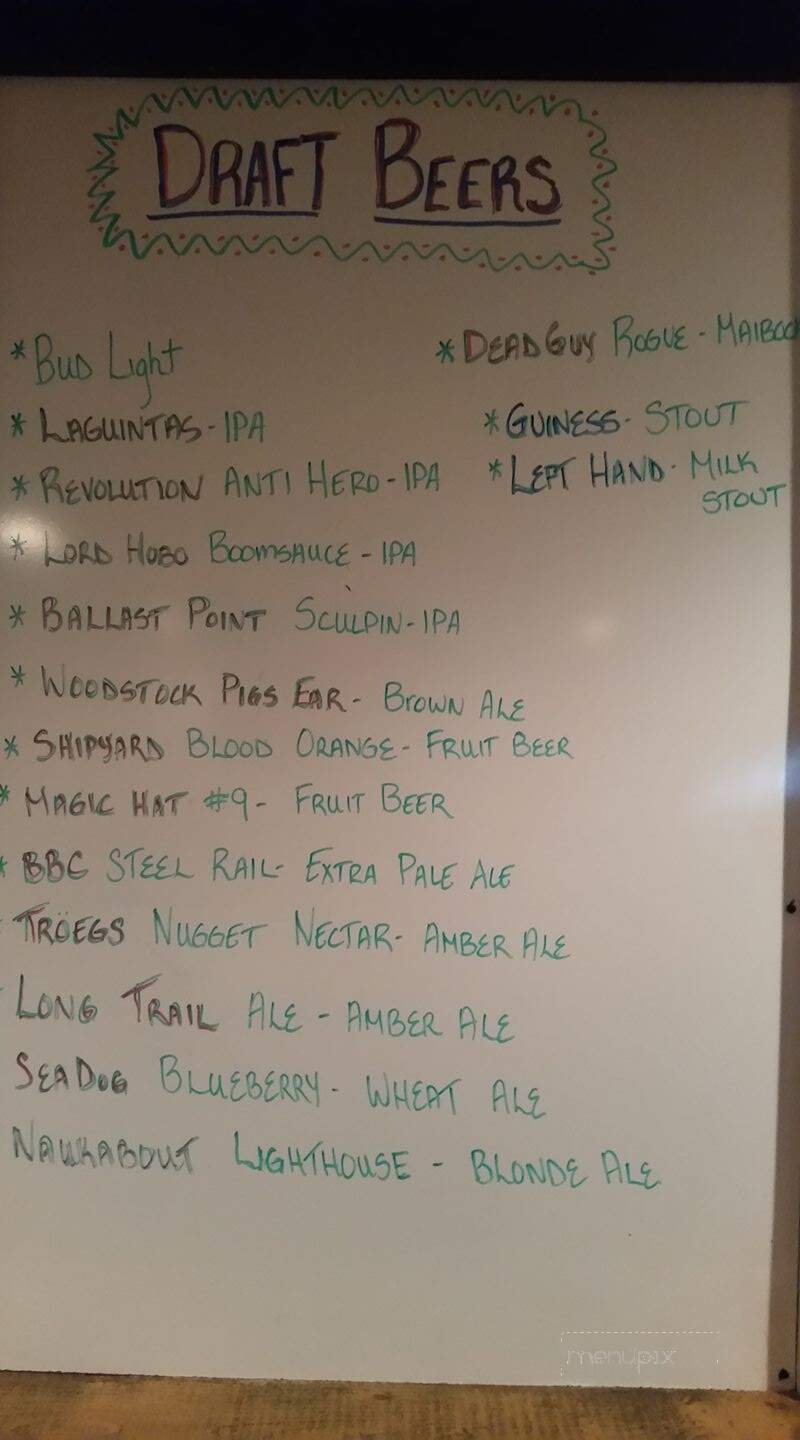 DRAFT BEERS
* Bud Light
* LAGUINTAS - IPA
* REVOLUTION ANTI HERO - IPA
* LORD HOBO BOOMSAUCE - IPA
* BALLAST POINT SCULPIN - IPA
* WOODSTOCK PIGS EAR - BROWN ALE
* SHIPYARD BLOOD ORANGE - FRUIT BEER
* MAGIC HAT #9 - FRUIT BEER
* BBC STEEL RAIL - EXTRA PALE ALE
TRÖEGS NUGGET NECTAR - AMBER ALE
LONG TRAIL ALE - AMBER ALE
SEA DOG BLUEBERRY - WHEAT ALE
NAUKABOUT LIGHTHOUSE - BLONDE ALE
* DEAD GUY ROGUE - MAIBOCK
* GUINESS - STOUT
* LEFT HAND - MILK
STOUT
menupix